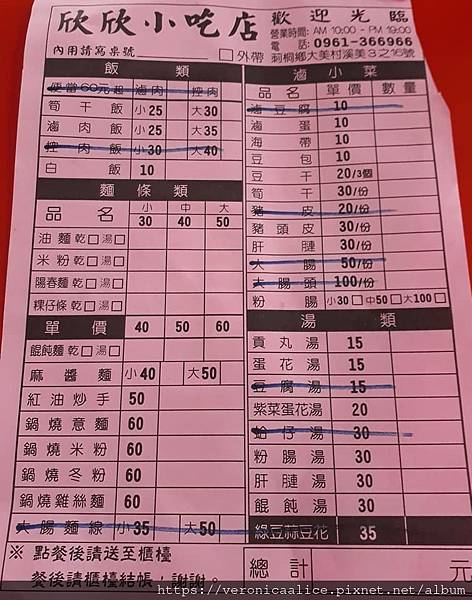 欣欣小吃店 歡迎光臨
營業時間: AM 10:00 - PM 19:00
電話: 0961-366966
內用請寫桌號 □外帶 莿桐鄉大美村溪美3之16號
飯類
便當60元起 滷肉 控肉
筍干飯 小25 大30
滷肉飯 小25 大35
控肉飯 小30 大40
白飯 10
麵條類
品名 小30 中40 大50
油麵 乾□湯□
米粉 乾□湯□
陽春麵 乾□湯□
粿仔條 乾□湯□
單價 40 50 60
餛飩麵 乾□湯□
麻醬麵 小40 大50
紅油炒手 50
鍋燒意麵 60
鍋燒米粉 60
鍋燒冬粉 60
鍋燒雞絲麵 60
大腸麵線 小35 大50
※ 點餐後請送至櫃檯
餐後請櫃檯結帳，謝謝。
滷小菜
品名 單價 數量
滷豆腐 10
滷蛋 10
海帶 10
豆包 10
豆干 20/3個
筍干 30/份
豬皮 20/份
豬頭皮 30/份
肝腱 30/份
大腸 50/份
大腸頭 100/份
粉腸 小30□ 中50□ 大100□
湯類
貢丸湯 15
蛋花湯 15
豆腐湯 15
紫菜蛋花湯 20
蛤仔湯 30
粉腸湯 30
肝腱湯 30
餛飩湯 30
綠豆蒜豆花 35
總計 元
https://veronicaalice.pixnet.net/album